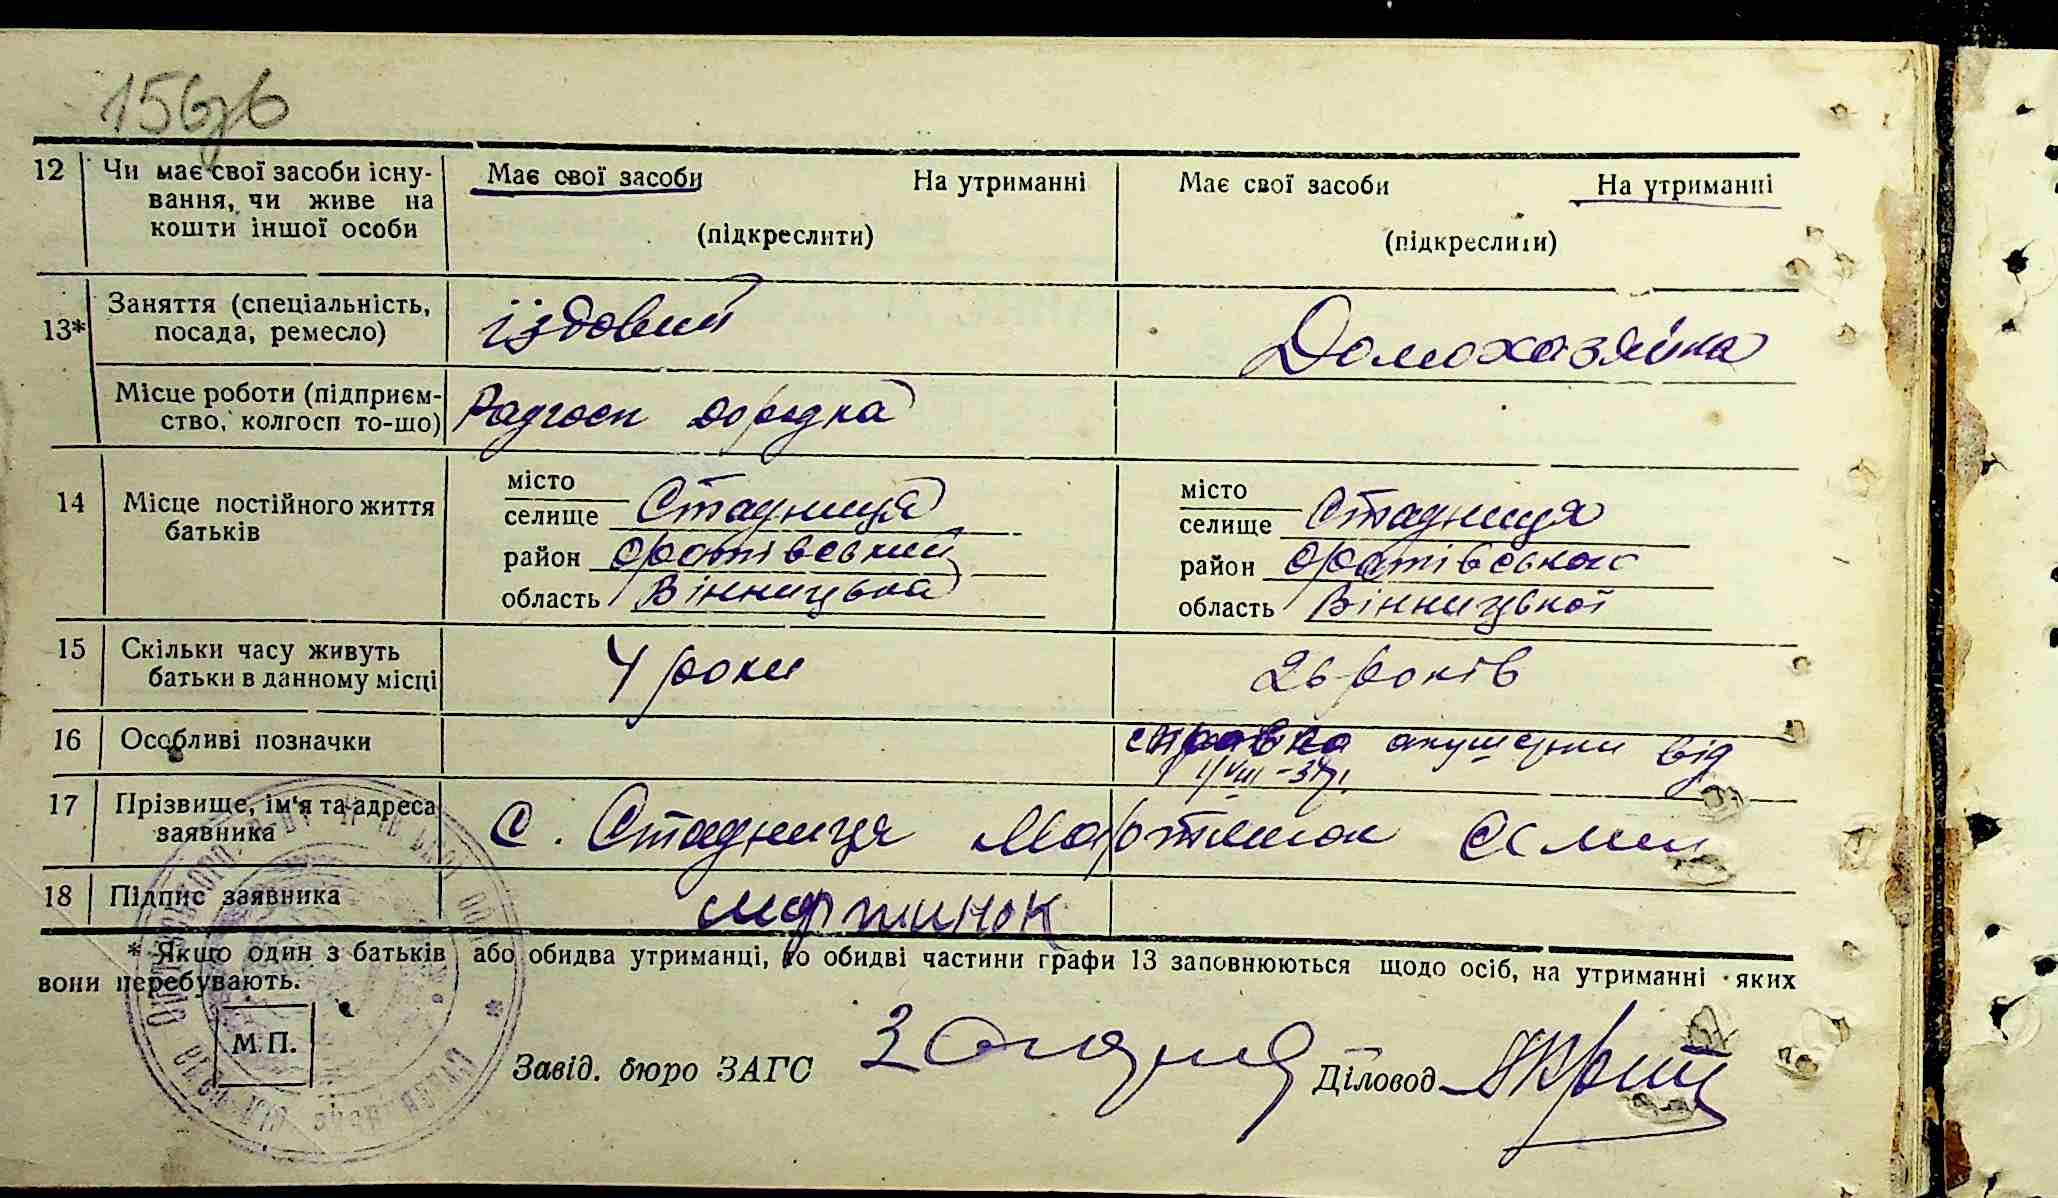 156зв
12 Чи має свої засоби існу- Має свої засоби На утриманні Має свої засоби На утриманні
вання, чи живе на
кошти іншої особи (підкреслити) (підкреслити)
13* Заняття (спеціальність, їздовий Домохазяйка
посада, ремесло)
Місце роботи (підприєм- Радгосп
ство, колгосп то-шо)
14 Місце постійного життя місто місто
батьків селище Стадниця селище Стадниця
район Оратівський район Оратівської
область Вінницька область Вінницької
15 Скільки часу живуть 4 роки 26 років
батьки в данному місці
16 Особливі позначки справка акушерки від
1/VIII-37р.
17 Прізвище, ім'я та адреса С. Стадниця Мартинюк
заявника
18 Підпис заявника мартинюк
* Якщо один з батьків або обидва утриманці, то обидві частини графи 13 заповнюються щодо осіб, на утриманні яких
вони перебувають.
М.П.
Завід. бюро ЗАГС Діловод